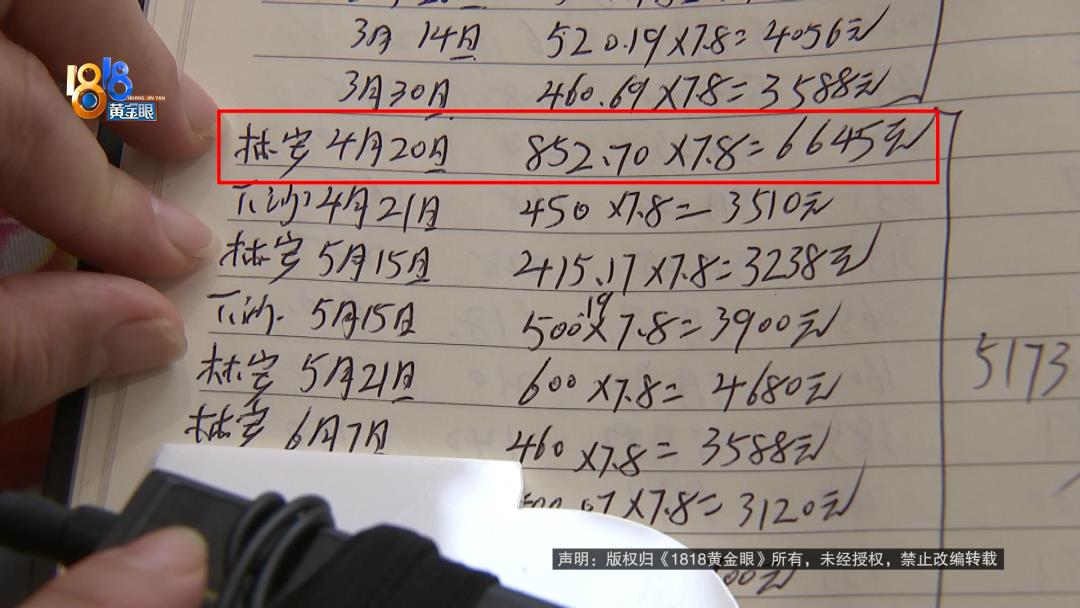 3月14日 520.19×7.8=4056元
3月30日 460.69×7.8=3588元
1818
HUANG JIN YAN
黄金眼
林安 4月20日 852.70×7.8=6645元
下沙 4月21日 450×7.8=3510元
林安 5月15日 2415.17×7.8=3238元
下沙. 5月15日 500.19×7.8=3900元
林安 5月21日 600×7.8=4680元
5173
林安 6月7日 460×7.8=3588元
×7.8=3120元
声明：版权归《1818黄金眼》所有，未经授权，禁止改编转载
00元